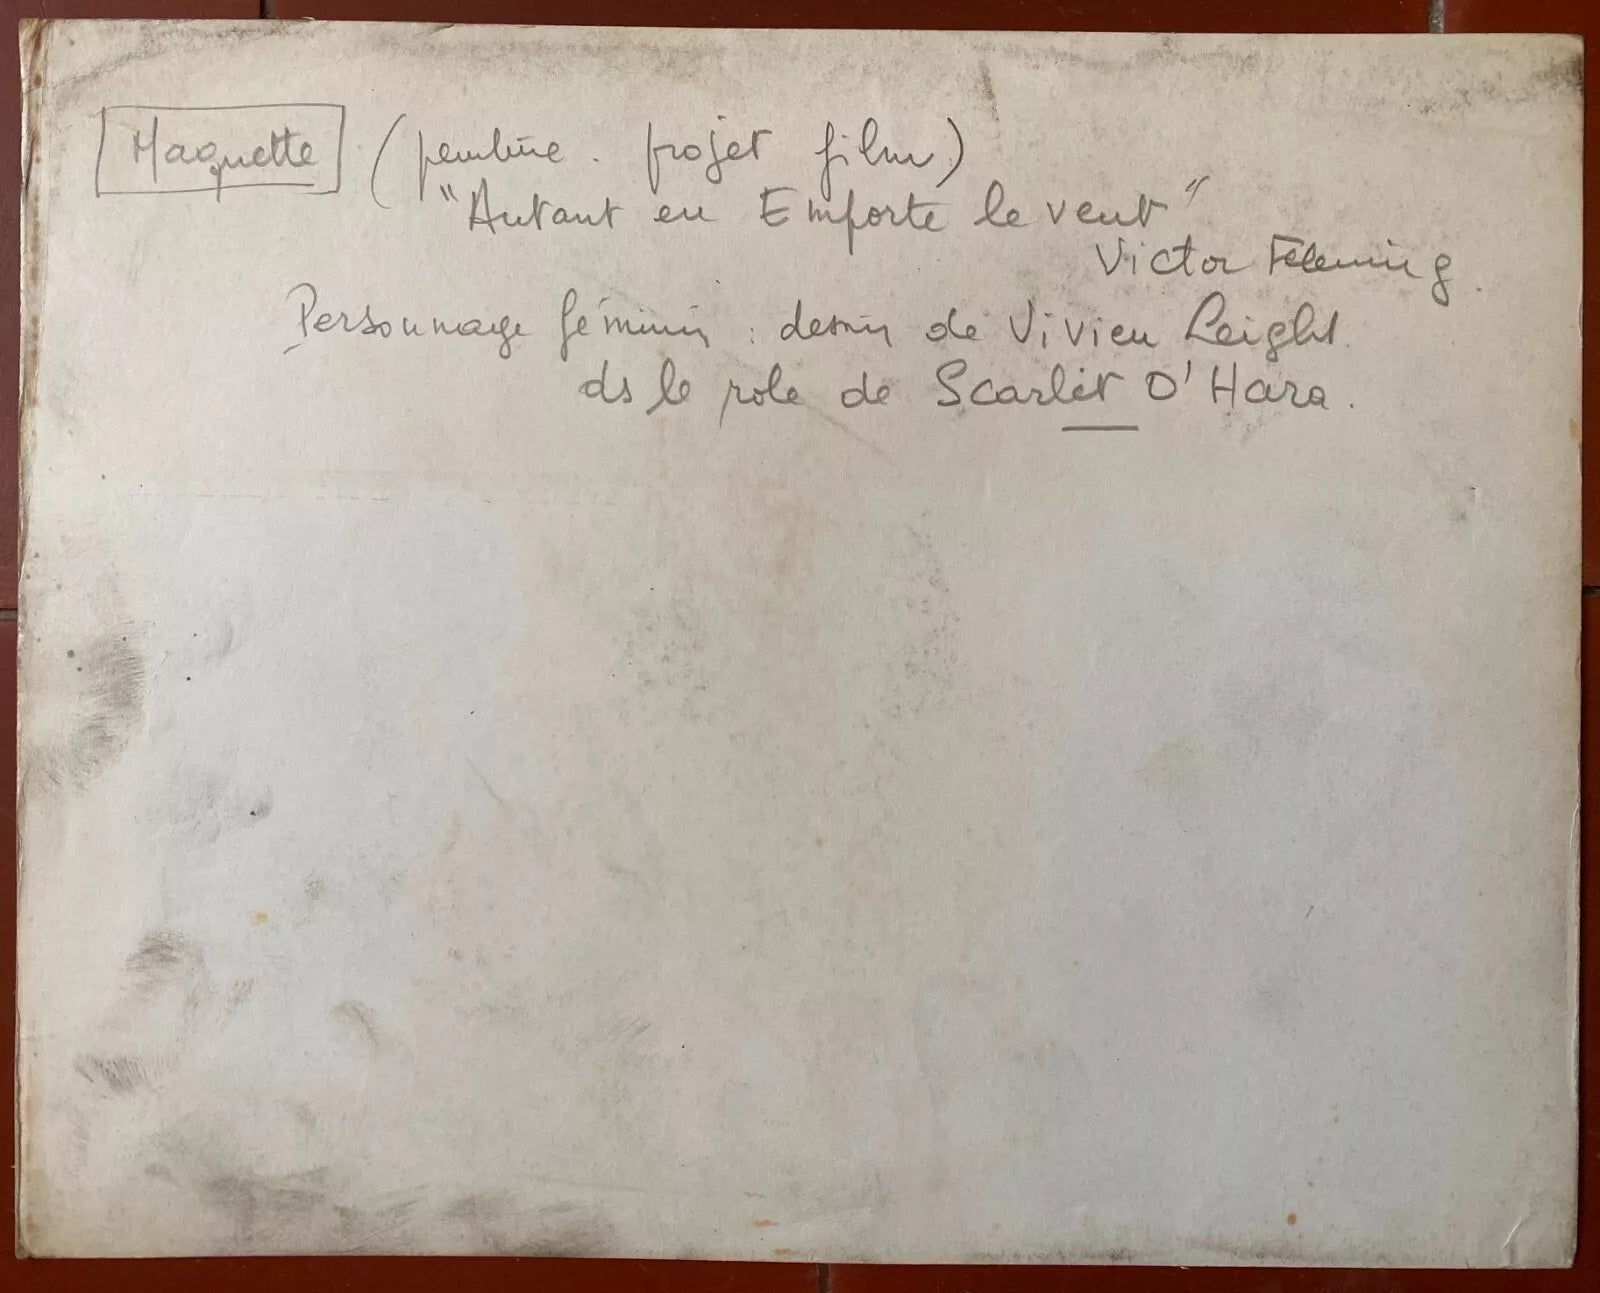 Maquette (peinture. projet film)
"Autant en Emporte le vent"
Victor Fleming.
Personnage féminin : dessin de Vivien Leight.
ds le role de Scarlet O'Hara.